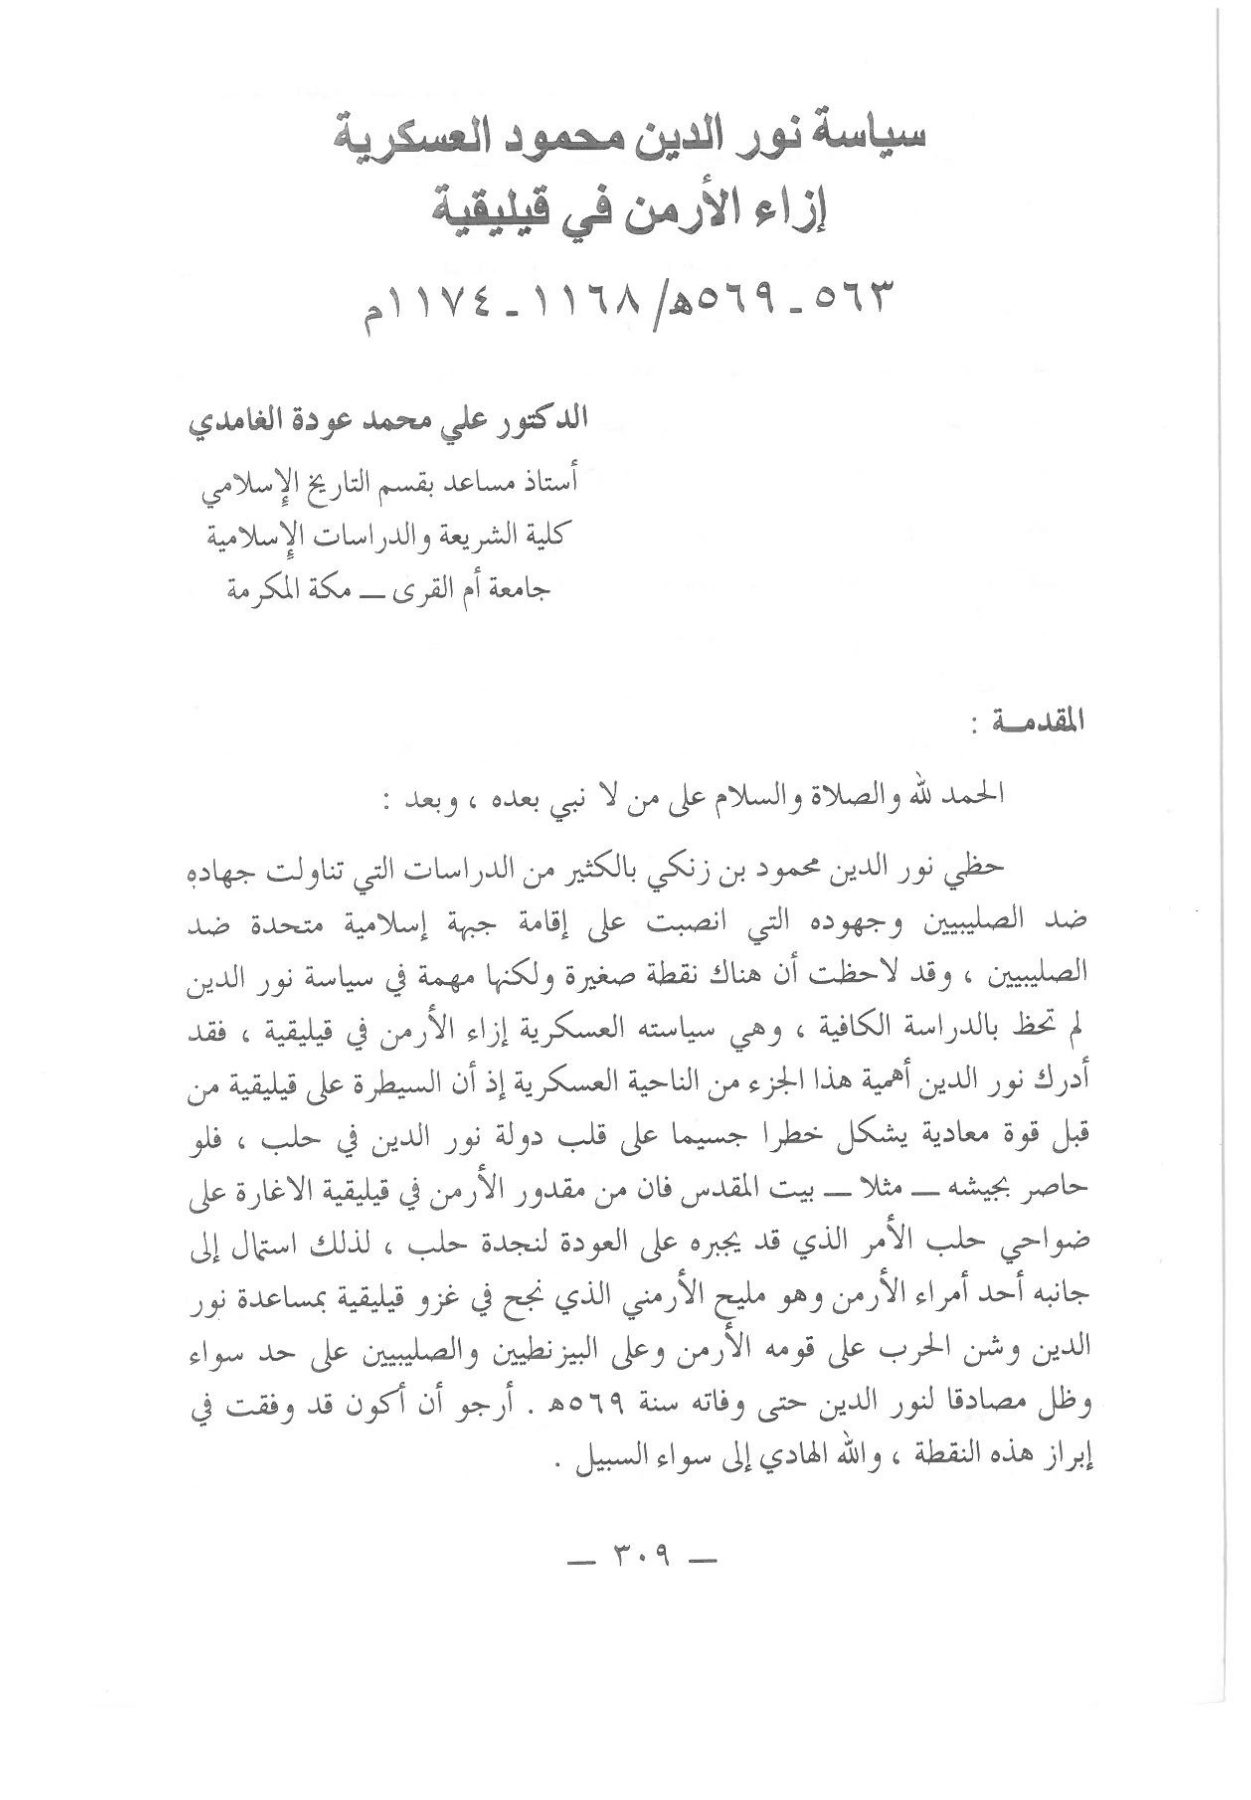 سياسة نور الدين محمود العسكرية
إزاء الأرمن في قيليقية
٥٦٣ - ٥٦٩ه/ ١١٦٨ - ١١٧٤م
الدكتور علي محمد عودة الغامدي
أستاذ مساعد بقسم التاريخ الإسلامي
كلية الشريعة والدراسات الإسلامية
جامعة أم القرى — مكة المكرمة
المقدمـة :
الحمد لله والصلاة والسلام على من لا نبي بعده ، وبعد :
حظي نور الدين محمود بن زنكي بالكثير من الدراسات التي تناولت جهاده
ضد الصليبيين وجهوده التي انصبت على إقامة جبهة إسلامية متحدة ضد
الصليبيين ، وقد لاحظت أن هناك نقطة صغيرة ولكنها مهمة في سياسة نور الدين
لم تحظ بالدراسة الكافية ، وهي سياسته العسكرية إزاء الأرمن في قيليقية ، فقد
أدرك نور الدين أهمية هذا الجزء من الناحية العسكرية إذ أن السيطرة على قيليقية من
قبل قوة معادية يشكل خطرا جسيما على قلب دولة نور الدين في حلب ، فلو
حاصر بجيشه — مثلا — بيت المقدس فان من مقدور الأرمن في قيليقية الاغارة على
ضواحي حلب الأمر الذي قد يجبره على العودة لنجدة حلب ، لذلك استمال إلى
جانبه أحد أمراء الأرمن وهو مليح الأرمني الذي نجح في غزو قيليقية بمساعدة نور
الدين وشن الحرب على قومه الأرمن وعلى البيزنطيين والصليبيين على حد سواء
وظل مصادقا لنور الدين حتى وفاته سنة ٥٦٩ه . أرجو أن أكون قد وفقت في
إبراز هذه النقطة ، والله الهادي إلى سواء السبيل .
— ٣٠٩ —